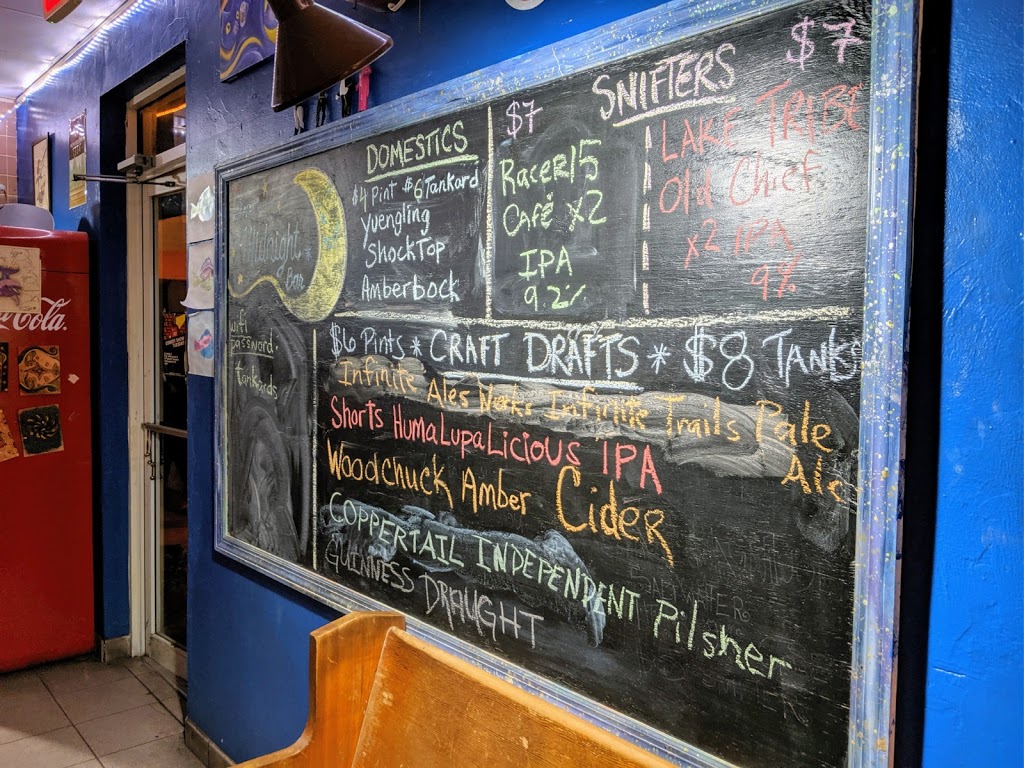 Cola
Midnight
Bar
wifi
password.
tankards
DOMESTICS
$4 Pint $6 Tankard
Yuengling
ShockTop
Amberbock
SNIFTERS
$7
Racer15
Café x2
IPA
9.2%
$7
LAKE TRIBE
Old Chief
x2 IPA
9%
$6 Pints * CRAFT DRAFTS * $8 TANKS
Infinite Ales Works Infinite Trails Pale
Ale
Shorts HumaLupaLicious IPA
Woodchuck Amber Cider
COPPERTAIL INDEPENDENT Pilsner
GUINNESS DRAUGHT